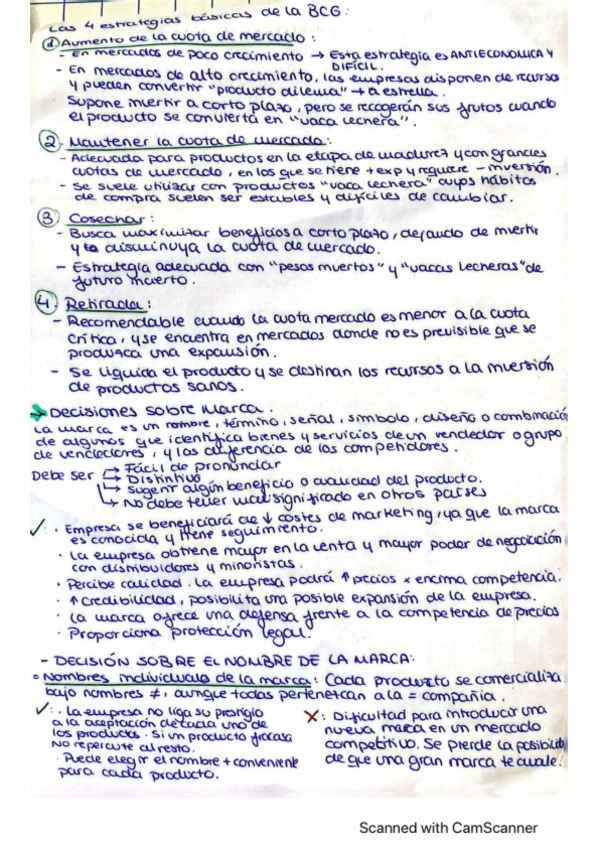 Las 4 estrategias básicas de la BCG:
① Aumento de la cuota de mercado:
- En mercados de poco crecimiento → Esta estrategia es ANTIECONOMICA Y
DIFÍCIL.
- En mercados de alto crecimiento, las empresas disponen de recurso
y pueden convertir "producto dilema" → a estrella.
Supone invertir a corto plazo, pero se recogerán sus frutos cuando
el producto se convierta en "vaca lechera".
② Mantener la cuota de mercado:
- Adecuada para productos en la etapa de madurez y con grandes
cuotas de mercado, en los que se tiene + exp y requiere - inversión.
- Se suele utilizar con productos "vaca lechera" cuyos hábitos
de compra suelen ser estables y difíciles de cambiar.
③ Cosechar:
- Busca maximizar beneficios a corto plazo, dejando de invertir
y disminuya la cuota de mercado.
- Estrategia adecuada con "pesos muertos" y "vacas lecheras" de
futuro incierto.
④ Retirada:
- Recomendable cuando la cuota mercado es menor a la cuota
crítica, y se encuentra en mercados donde no es previsible que se
produzca una expansión.
- Se liquida el producto y se destinan los recursos a la inversión
de productos sanos.
→ Decisiones sobre marca.
La marca es un nombre, término, señal, símbolo, diseño o combinación
de algunos que identifica bienes y servicios de un vendedor o grupo
de vendedores, y los diferencia de los competidores.
Debe ser → Fácil de pronunciar
→ Distintivo
→ Sugerir algún beneficio o cualidad del producto.
→ No debe tener mal significado en otros países
✓: · Empresa se beneficiará de ↓ costes de marketing, ya que la marca
es conocida y tiene seguimiento.
· La empresa obtiene mayor en la venta y mayor poder de negociación
con distribuidores y minoristas.
· Percibe calidad. La empresa podrá ↑ precios x encima competencia.
· ↑ Credibilidad, posibilita una posible expansión de la empresa.
· La marca ofrece una defensa frente a la competencia de precios
· Proporciona protección legal.
- DECISIÓN SOBRE EL NOMBRE DE LA MARCA:
° Nombres individuales de la marca: Cada producto se comercializa
bajo nombres ≠, aunque todas pertenezcan a la = compañía.
✓: · La empresa no liga su prestigio
a la aceptación de cada uno de
los productos. Si un producto fracasa
No repercute al resto.
· Puede elegir el nombre + conveniente
para cada producto.
X: · Dificultad para introducir una
nueva marca en un mercado
competitivo. Se pierde la posibilid
de que una gran marca te avale.
Scanned with CamScanner